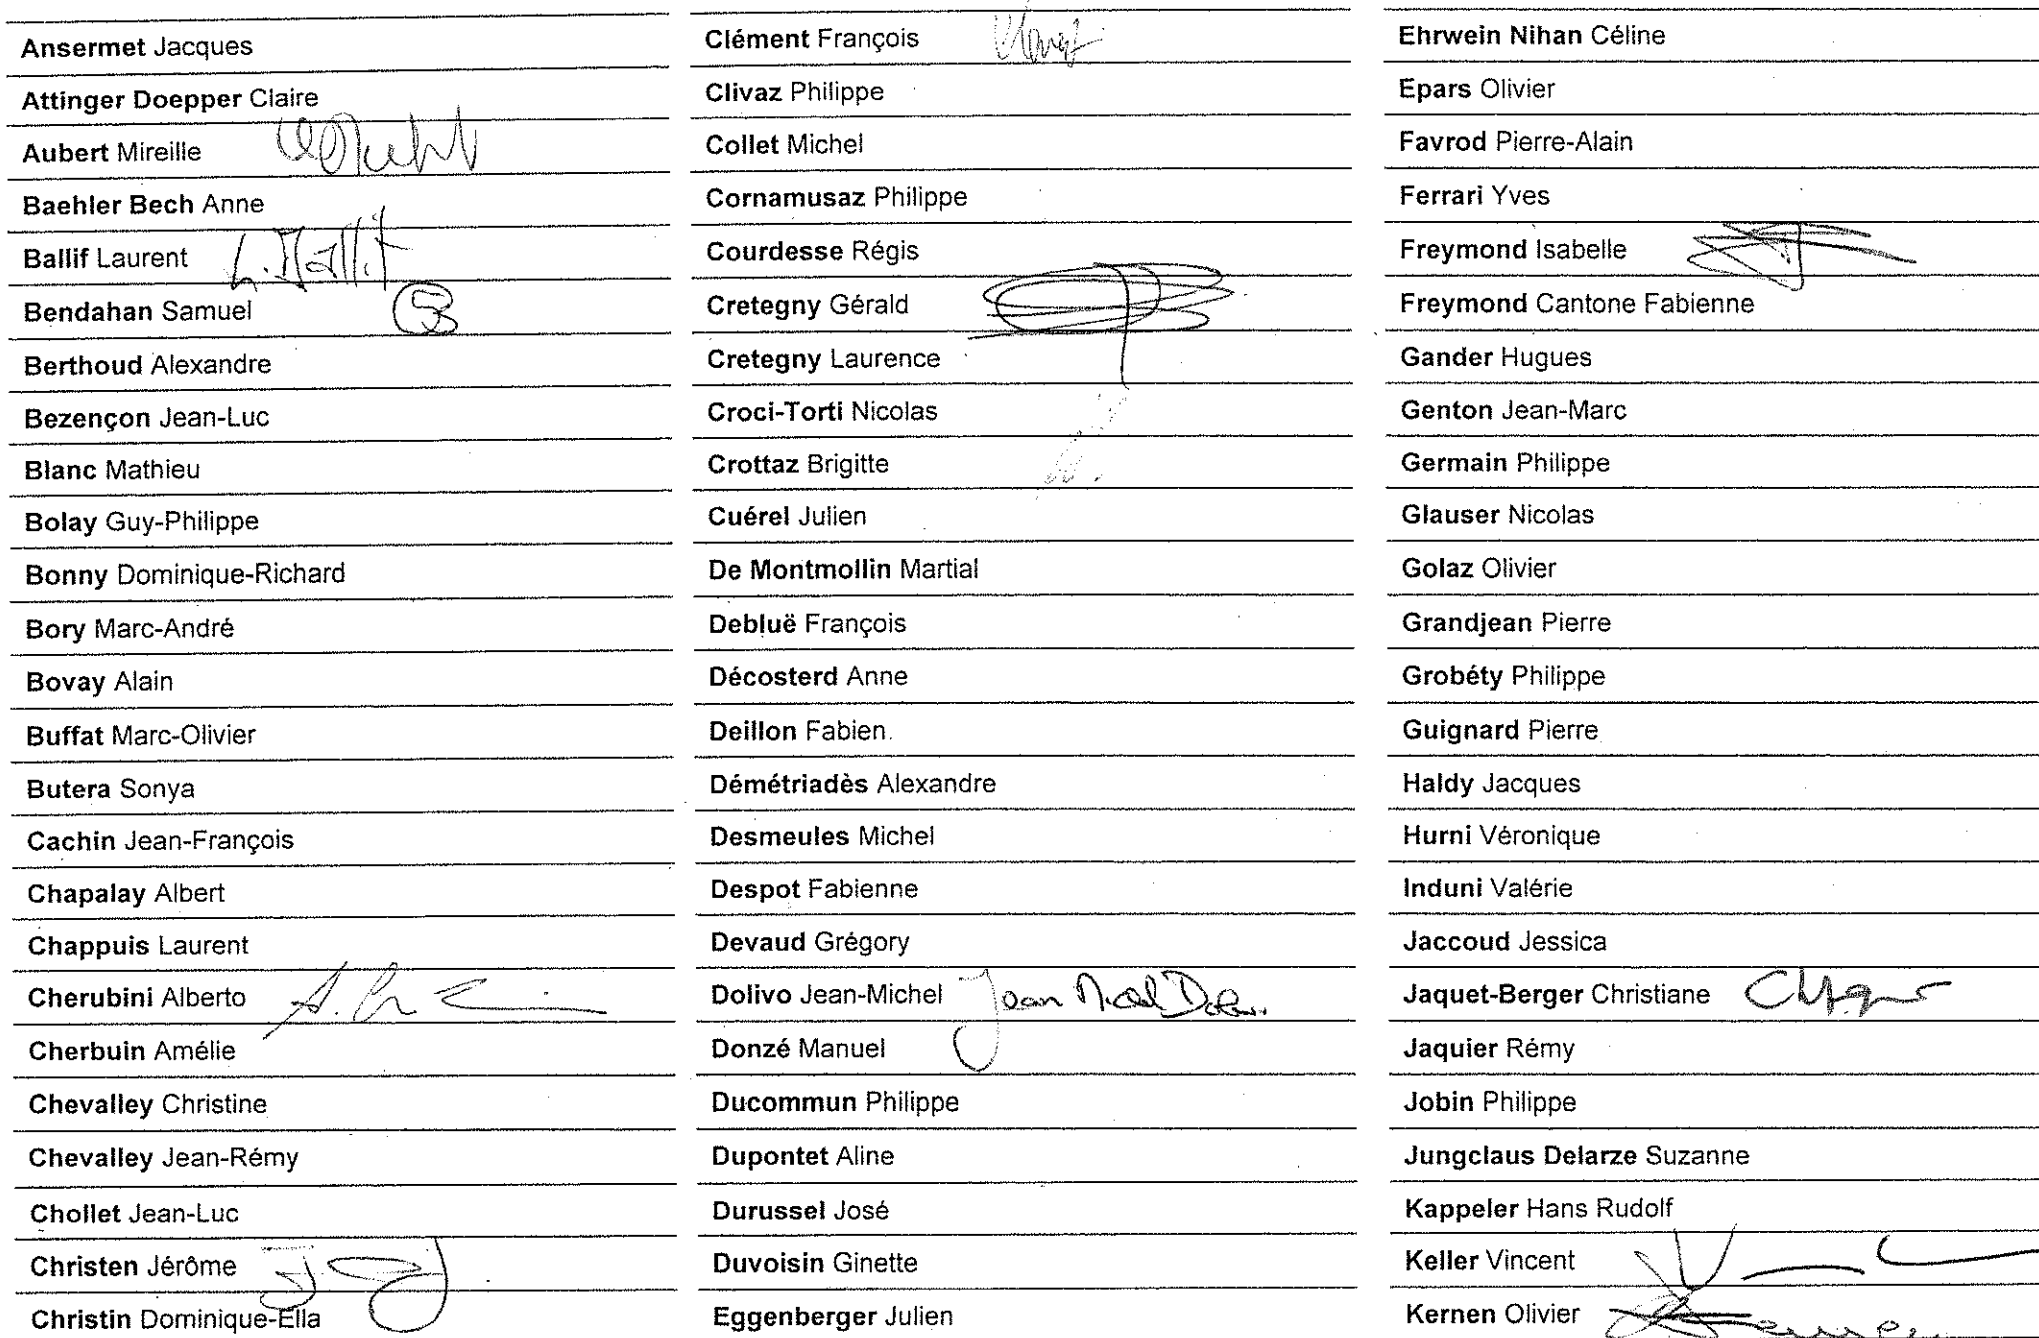 Ansermet Jacques
Attinger Doepper Claire
Aubert Mireille
Baehler Bech Anne
Ballif Laurent L. Ballif
Bendahan Samuel
Berthoud Alexandre
Bezençon Jean-Luc
Blanc Mathieu
Bolay Guy-Philippe
Bonny Dominique-Richard
Bory Marc-André
Bovay Alain
Buffat Marc-Olivier
Butera Sonya
Cachin Jean-François
Chapalay Albert
Chappuis Laurent
Cherubini Alberto
Cherbuin Amélie
Chevalley Christine
Chevalley Jean-Rémy
Chollet Jean-Luc
Christen Jérôme
Christin Dominique-Ella
Clément François
Clivaz Philippe
Collet Michel
Cornamusaz Philippe
Courdesse Régis
Cretegny Gérald
Cretegny Laurence
Croci-Torti Nicolas
Crottaz Brigitte
Cuérel Julien
De Montmollin Martial
Debluë François
Décosterd Anne
Deillon Fabien
Démétriadès Alexandre
Desmeules Michel
Despot Fabienne
Devaud Grégory
Dolivo Jean-Michel Jean
Donzé Manuel
Ducommun Philippe
Dupontet Aline
Durussel José
Duvoisin Ginette
Eggenberger Julien
Ehrwein Nihan Céline
Epars Olivier
Favrod Pierre-Alain
Ferrari Yves
Freymond Isabelle
Freymond Cantone Fabienne
Gander Hugues
Genton Jean-Marc
Germain Philippe
Glauser Nicolas
Golaz Olivier
Grandjean Pierre
Grobéty Philippe
Guignard Pierre
Haldy Jacques
Hurni Véronique
Induni Valérie
Jaccoud Jessica
Jaquet-Berger Christiane
Jaquier Rémy
Jobin Philippe
Jungclaus Delarze Suzanne
Kappeler Hans Rudolf
Keller Vincent
Kernen Olivier